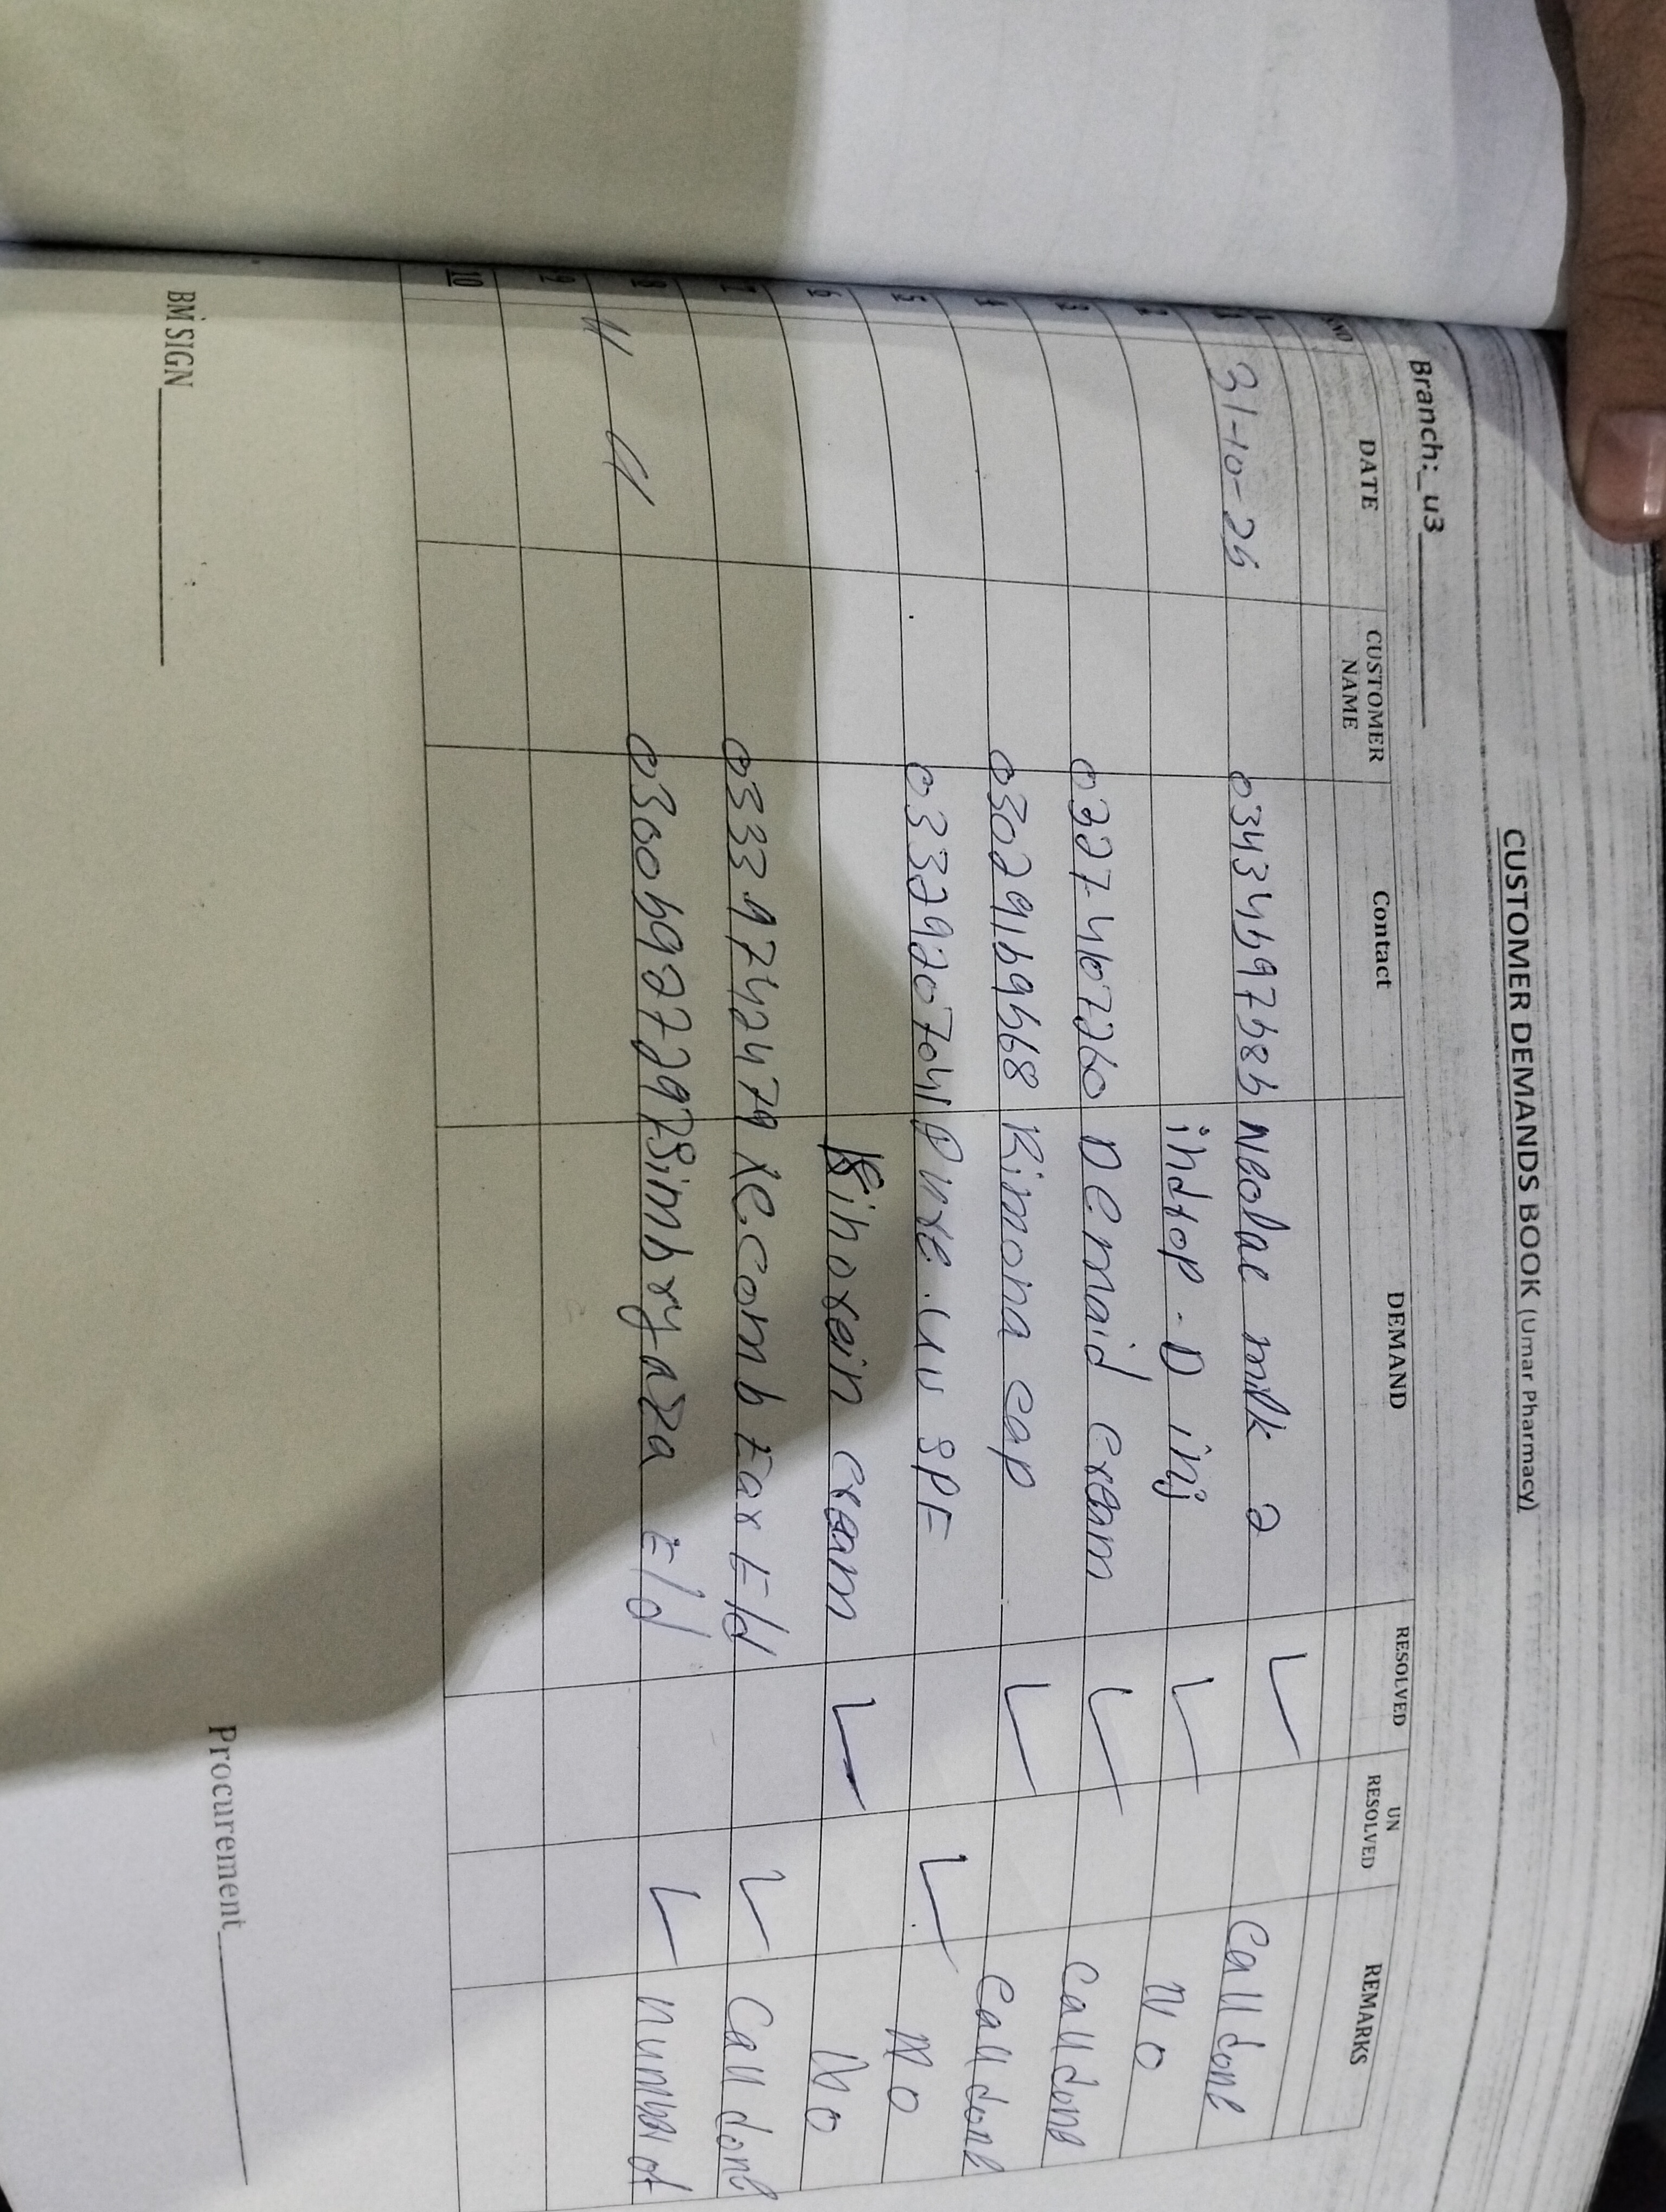 CUSTOMER DEMANDS BOOK (Umar Pharmacy)
Branch: u3
SNO DATE CUSTOMER NAME Contact DEMAND RESOLVED UN RESOLVED REMARKS
1 31-10-25 03434597585 Neolac milk 2 Call done
2 indrop-D inj NO
3 0327-4607260 Dermaid cream Call done
4 03029159568 Rimona cap Call done
5 03329207041 Puxe.uv SPF NO
6 cream NO
7 03339742479 xe.comb Ear E/d Call done
8 〃 〃 03005972297 Simbryaza E/d number of
9
10
BM SIGN
Procurement